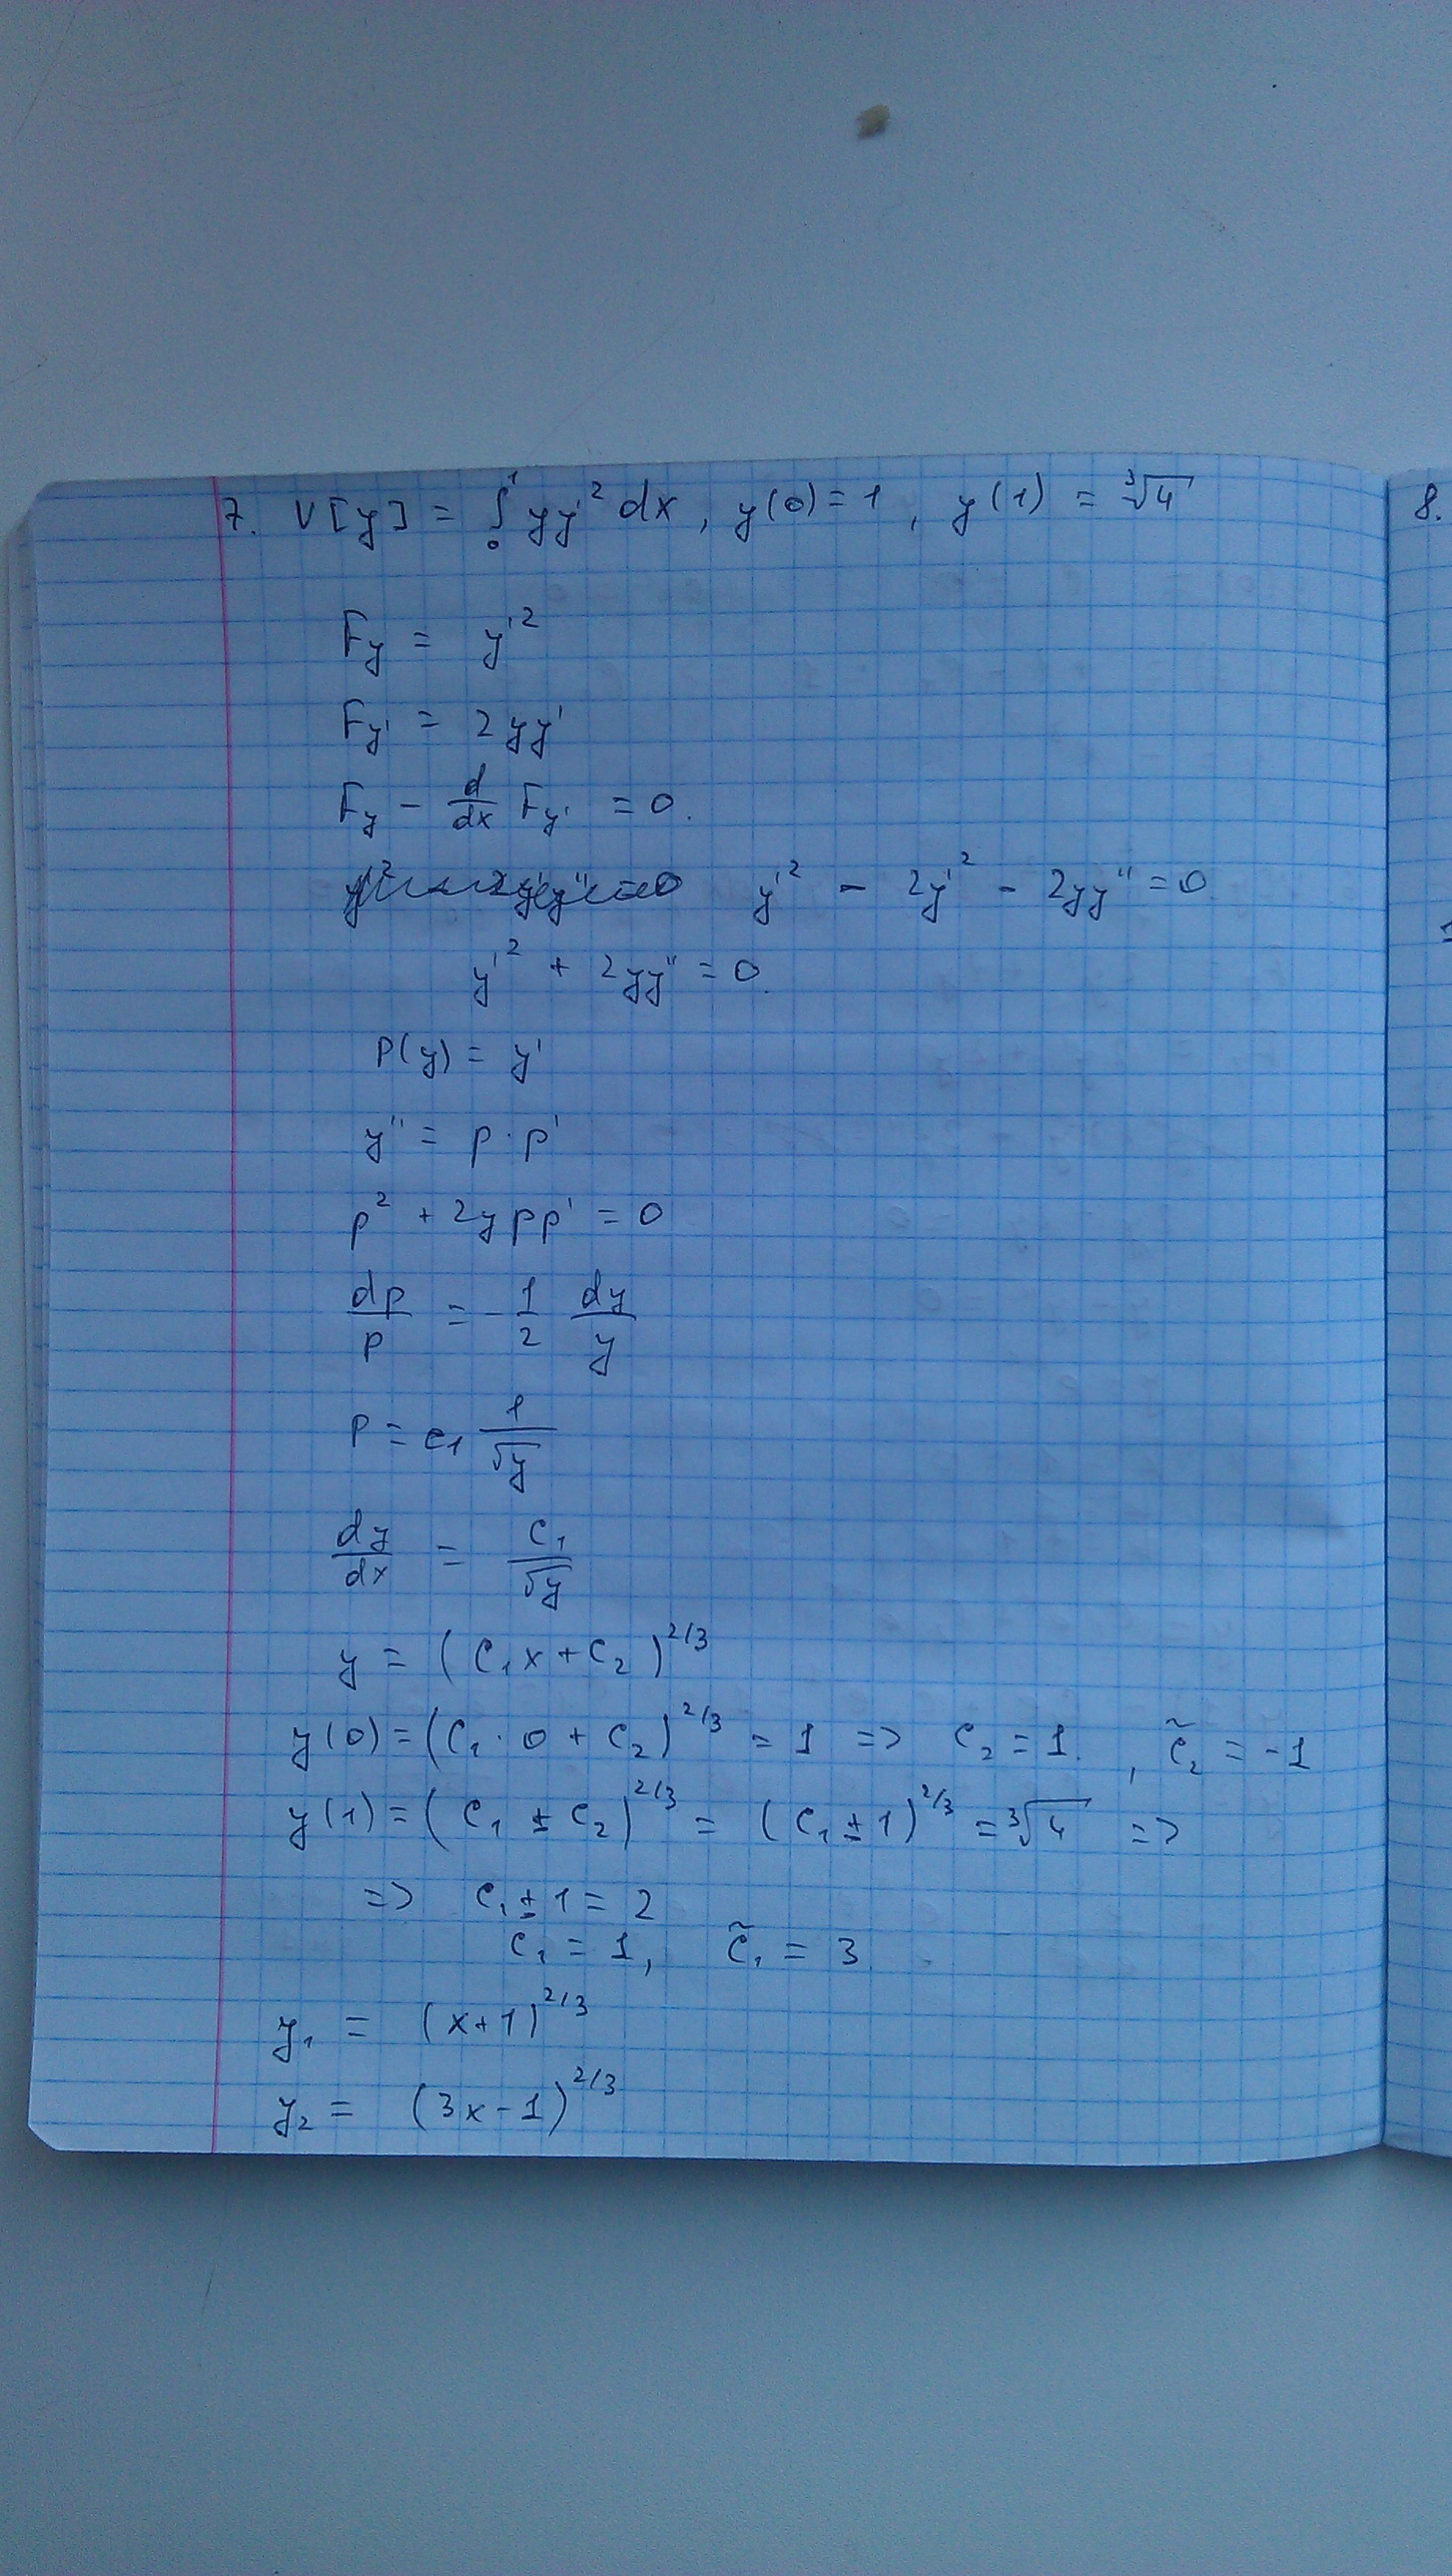 7. V[y] = ∫₀¹ yy'² dx, y(0) = 1, y(1) = ∛4
8.
F_y = y'²
F_y' = 2yy'
F_y − d/dx F_y' = 0.
y'² − 2y'² − 2yy'' = 0
y'² + 2yy'' = 0.
P(y) = y'
y'' = p · p'
p² + 2ypp' = 0
dp/p = −1/2 dy/y
P = c₁ 1/√y
dy/dx = C₁/√y
y = (C₁x + C₂)^2/3
y(0) = (C₁ · 0 + C₂)^2/3 = 1 => C₂ = 1. , C̃₂ = −1
y(1) = (C₁ ± C₂)^2/3 = (C₁ ± 1)^2/3 = ∛4 =>
=> C₁ ± 1 = 2
C₁ = 1, C̃₁ = 3
y₁ = (x+1)^2/3
y₂ = (3x−1)^2/3